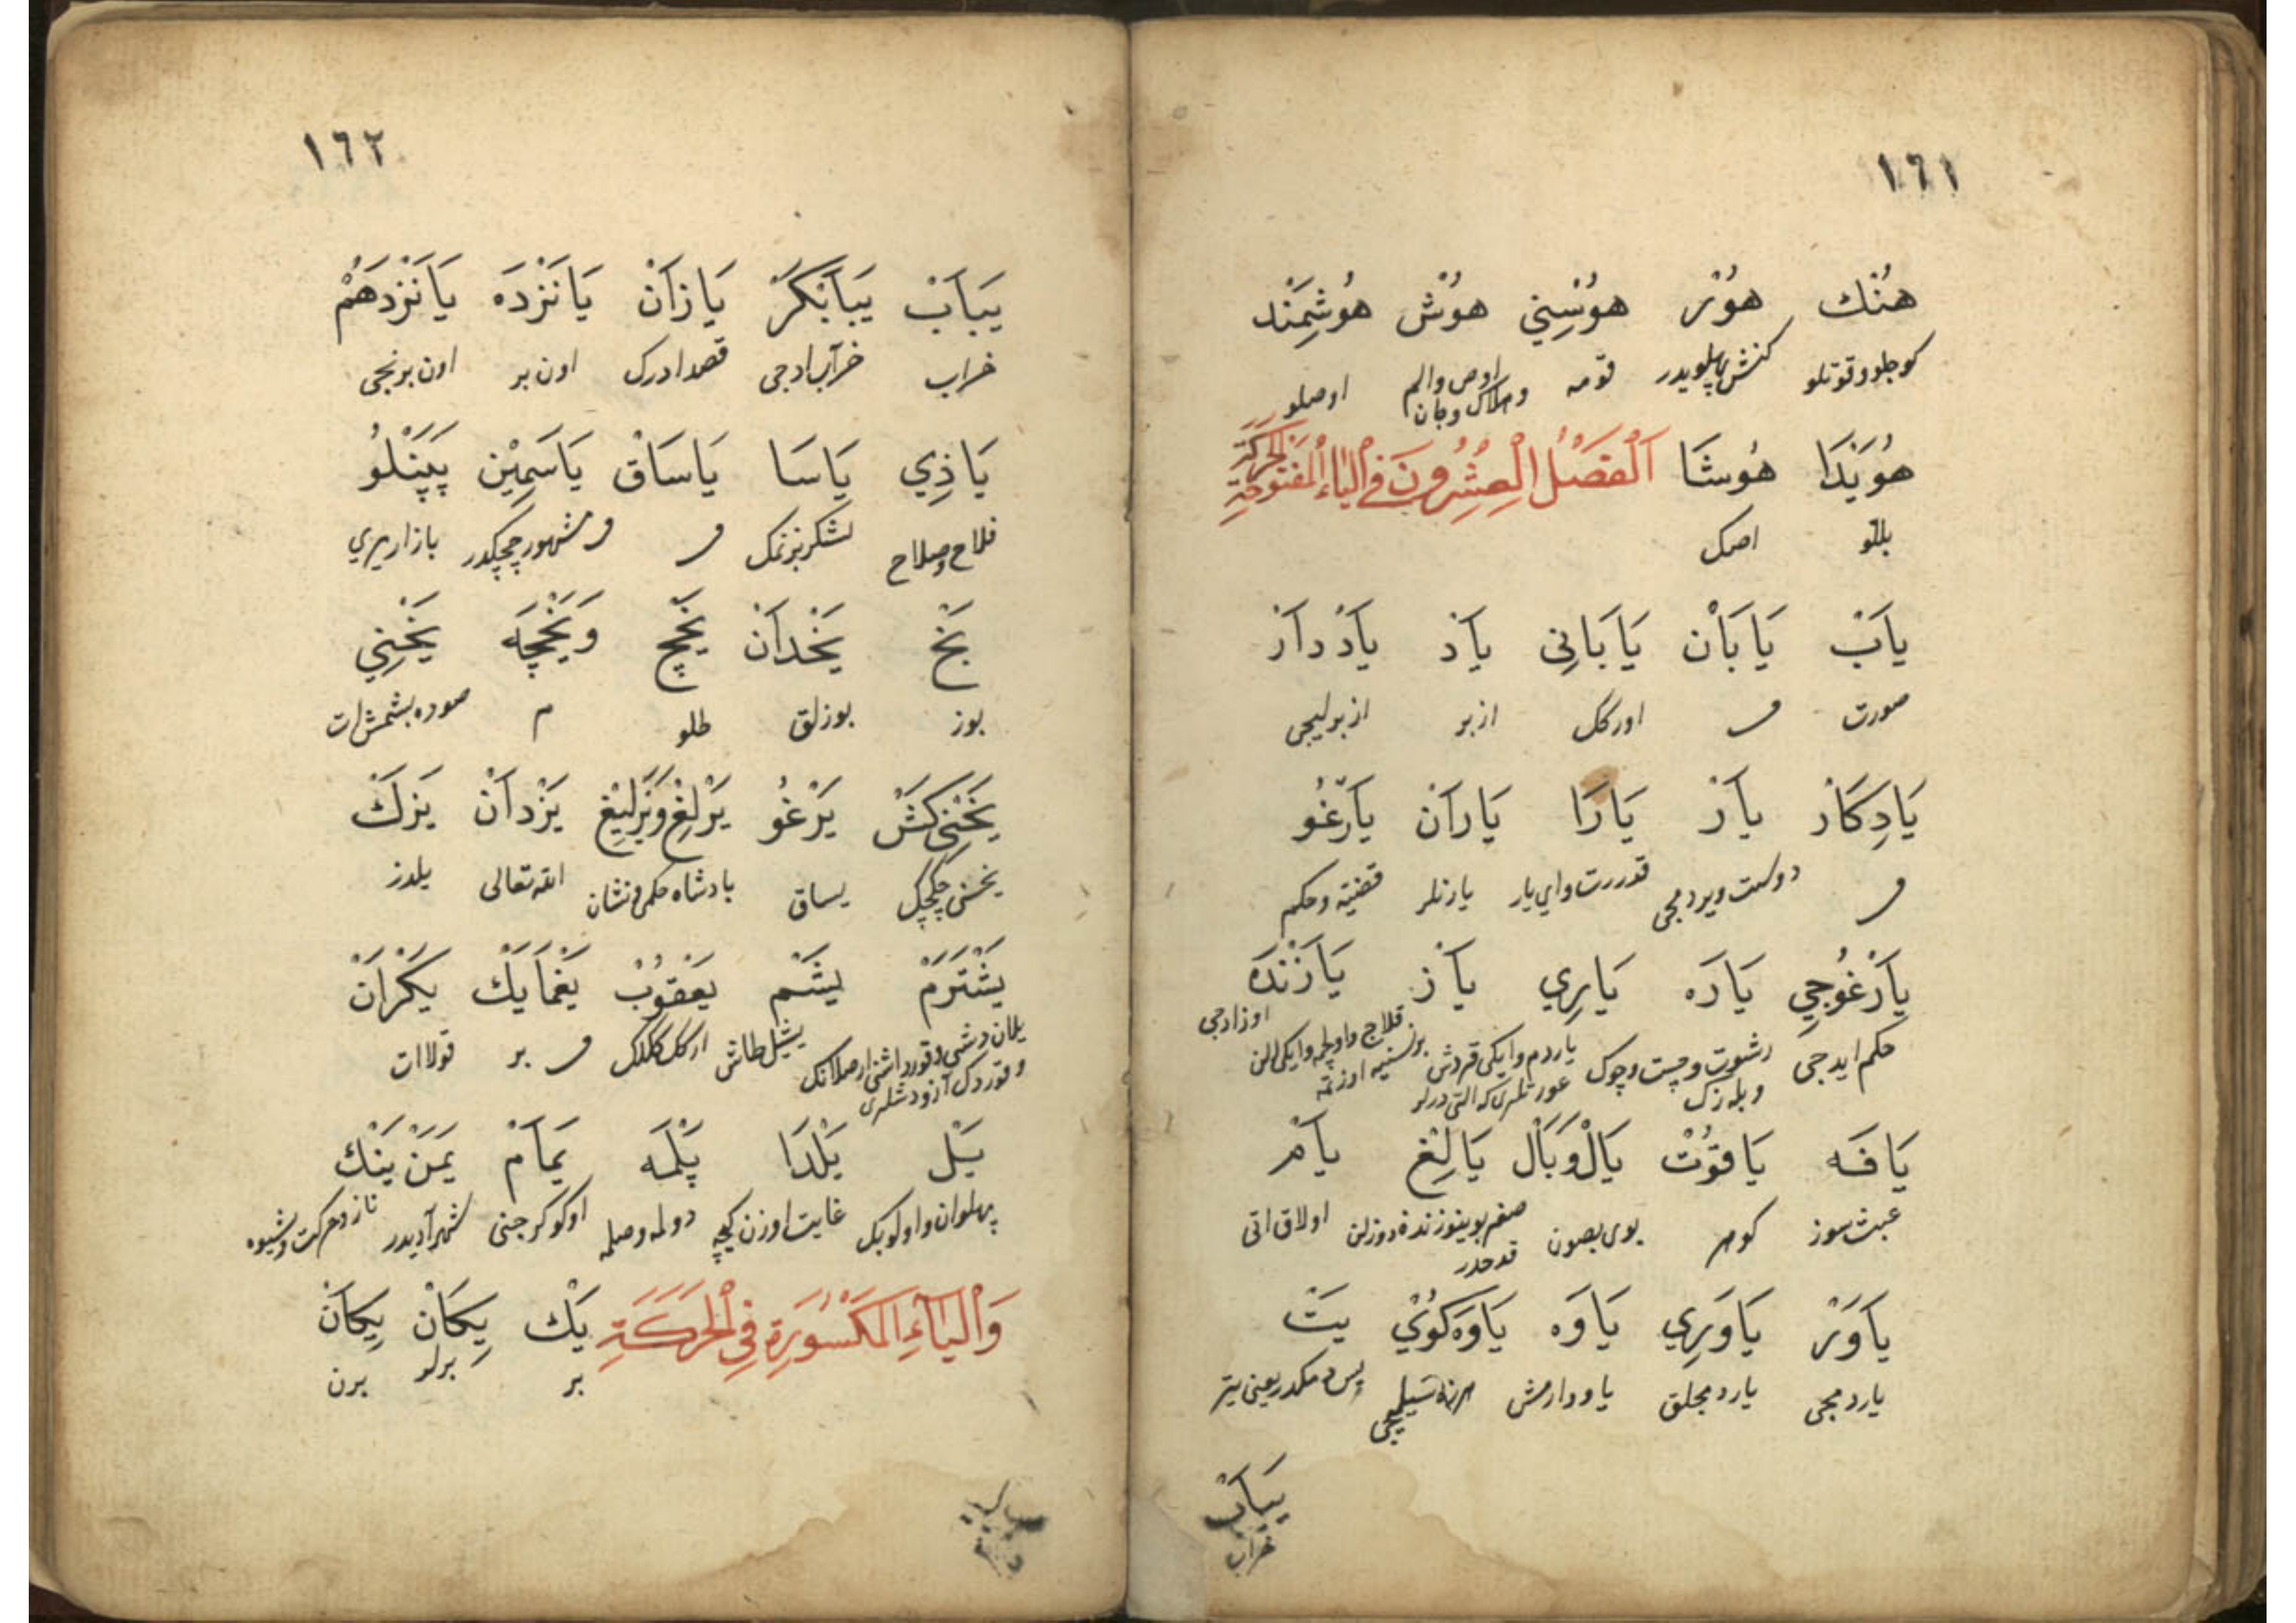 ١٦١
هُنْك هُوْر هُوْسِنِي هُوْش هُوْشِمَنْد
كوجلو وقوتلو كنش پهلويدر قومه اوص والم وهلاك وجان اوصلو
هُوَيْدَا هُوشَا اَلْفَصْلُ الْعِشْرُونَ فِي الْيَاءِ الْمَفْتُوحَةِ الْحَرَكَة
بللو اصمك
يَابْ يَابَانْ يَابَانِى يَادْ يَادْدَارْ
صورت م اوركك ازبر ازبرليجى
يَادِكَارْ يَارْ يَارَا يَارَانْ يَارْغُو
م دوست ويردمجى قدرت واى يار يارنلر قضيّه وحكم
يَارْغُوجِي يَارَه يَارِي يَازْ يَازَنْدَه
حكم ايدجى رشوت وچست وچوك وبلەزك ياردم وايكى قرداش عورتلرى كه التى درلر قلاج واولچمه وايكى الن اوزادجى
يَافَه يَاقُوتْ يَالْ وَبَالْ يَالِغْ يَامْ
عبث سوز كوهر بوى بصون صغر بوينوزندە دوزلن قدحدر اولاق اتى
يَاوَرْ يَاوَرِي يَاوَه يَاوَه كُوْي يَتْ
ياردمجى ياردمجلق ياودارمش هرزه سيليجى پس دمكدر يعنى يتر
يَبَابْ
خراب
١٦٢
يَبَابْ يَبَابْكَرْ يَازَانْ يَانْزَدَه يَانْزَدَهُمْ
خراب خراب ادجى قصد ادرك اون بر اون برنجى
يَاذِي يَاسَا يَاسَاقْ يَاسَمِيْن يَپَنْلُو
فلاح وصلاح لشكر بزنمك م م مشهور چچكدر بازار يرى
يَخْ يَخْدَانْ يَخْچ وَيَخْچَه يَخْنِي
بوز بوزلق طلو م صوده بشمش ات
يَخْنِي كَشْ يَرْغُو يَرْلِغْ وَيَرْلِيْغ يَزْدَانْ يَزَكْ
يخنى چكجك يساق پادشاه حكمى ونشان الله تعالى يلدز
يَشْتَرَمْ يَشَمْ يَعْقُوبْ يَغْمَا يَكْ يَكْرَانْ
يشيل طاش اركك ككلك م بر قولا ات
يَلْ يَلْدَا يَلْمَه يَمَامْ يَمَنْ يَنْكْ
پهلوان واولوبك غايت اوزن كيجه دولمه وصلمه اوكوكرجنى شهر آديدر ناز وحركت وشيوه
وَالْيَاءِ الْمَكْسُورَةِ فِي الْحَرَكَةِ يَكْ يِكَانْ يِكَانْ
بر برلو برن